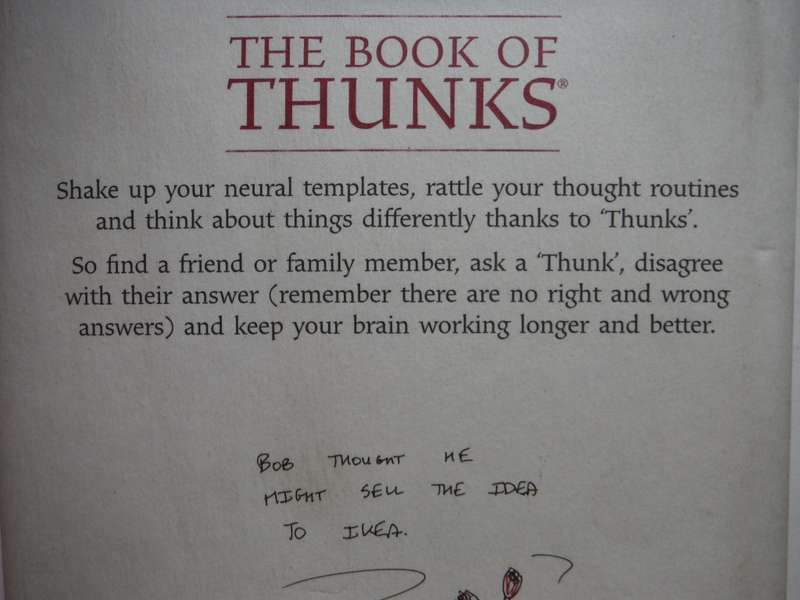 THE BOOK OF
THUNKS®
Shake up your neural templates, rattle your thought routines
and think about things differently thanks to ‘Thunks’.
So find a friend or family member, ask a ‘Thunk’, disagree
with their answer (remember there are no right and wrong
answers) and keep your brain working longer and better.
BOB THOUGHT HE
MIGHT SELL THE IDEA
TO IKEA.